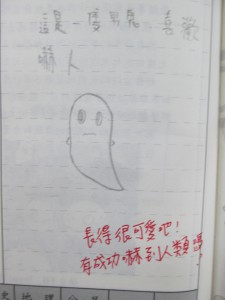 這是一隻男鬼,喜歡
嚇人
長得很可愛吧!
有成功嚇到人類嗎?